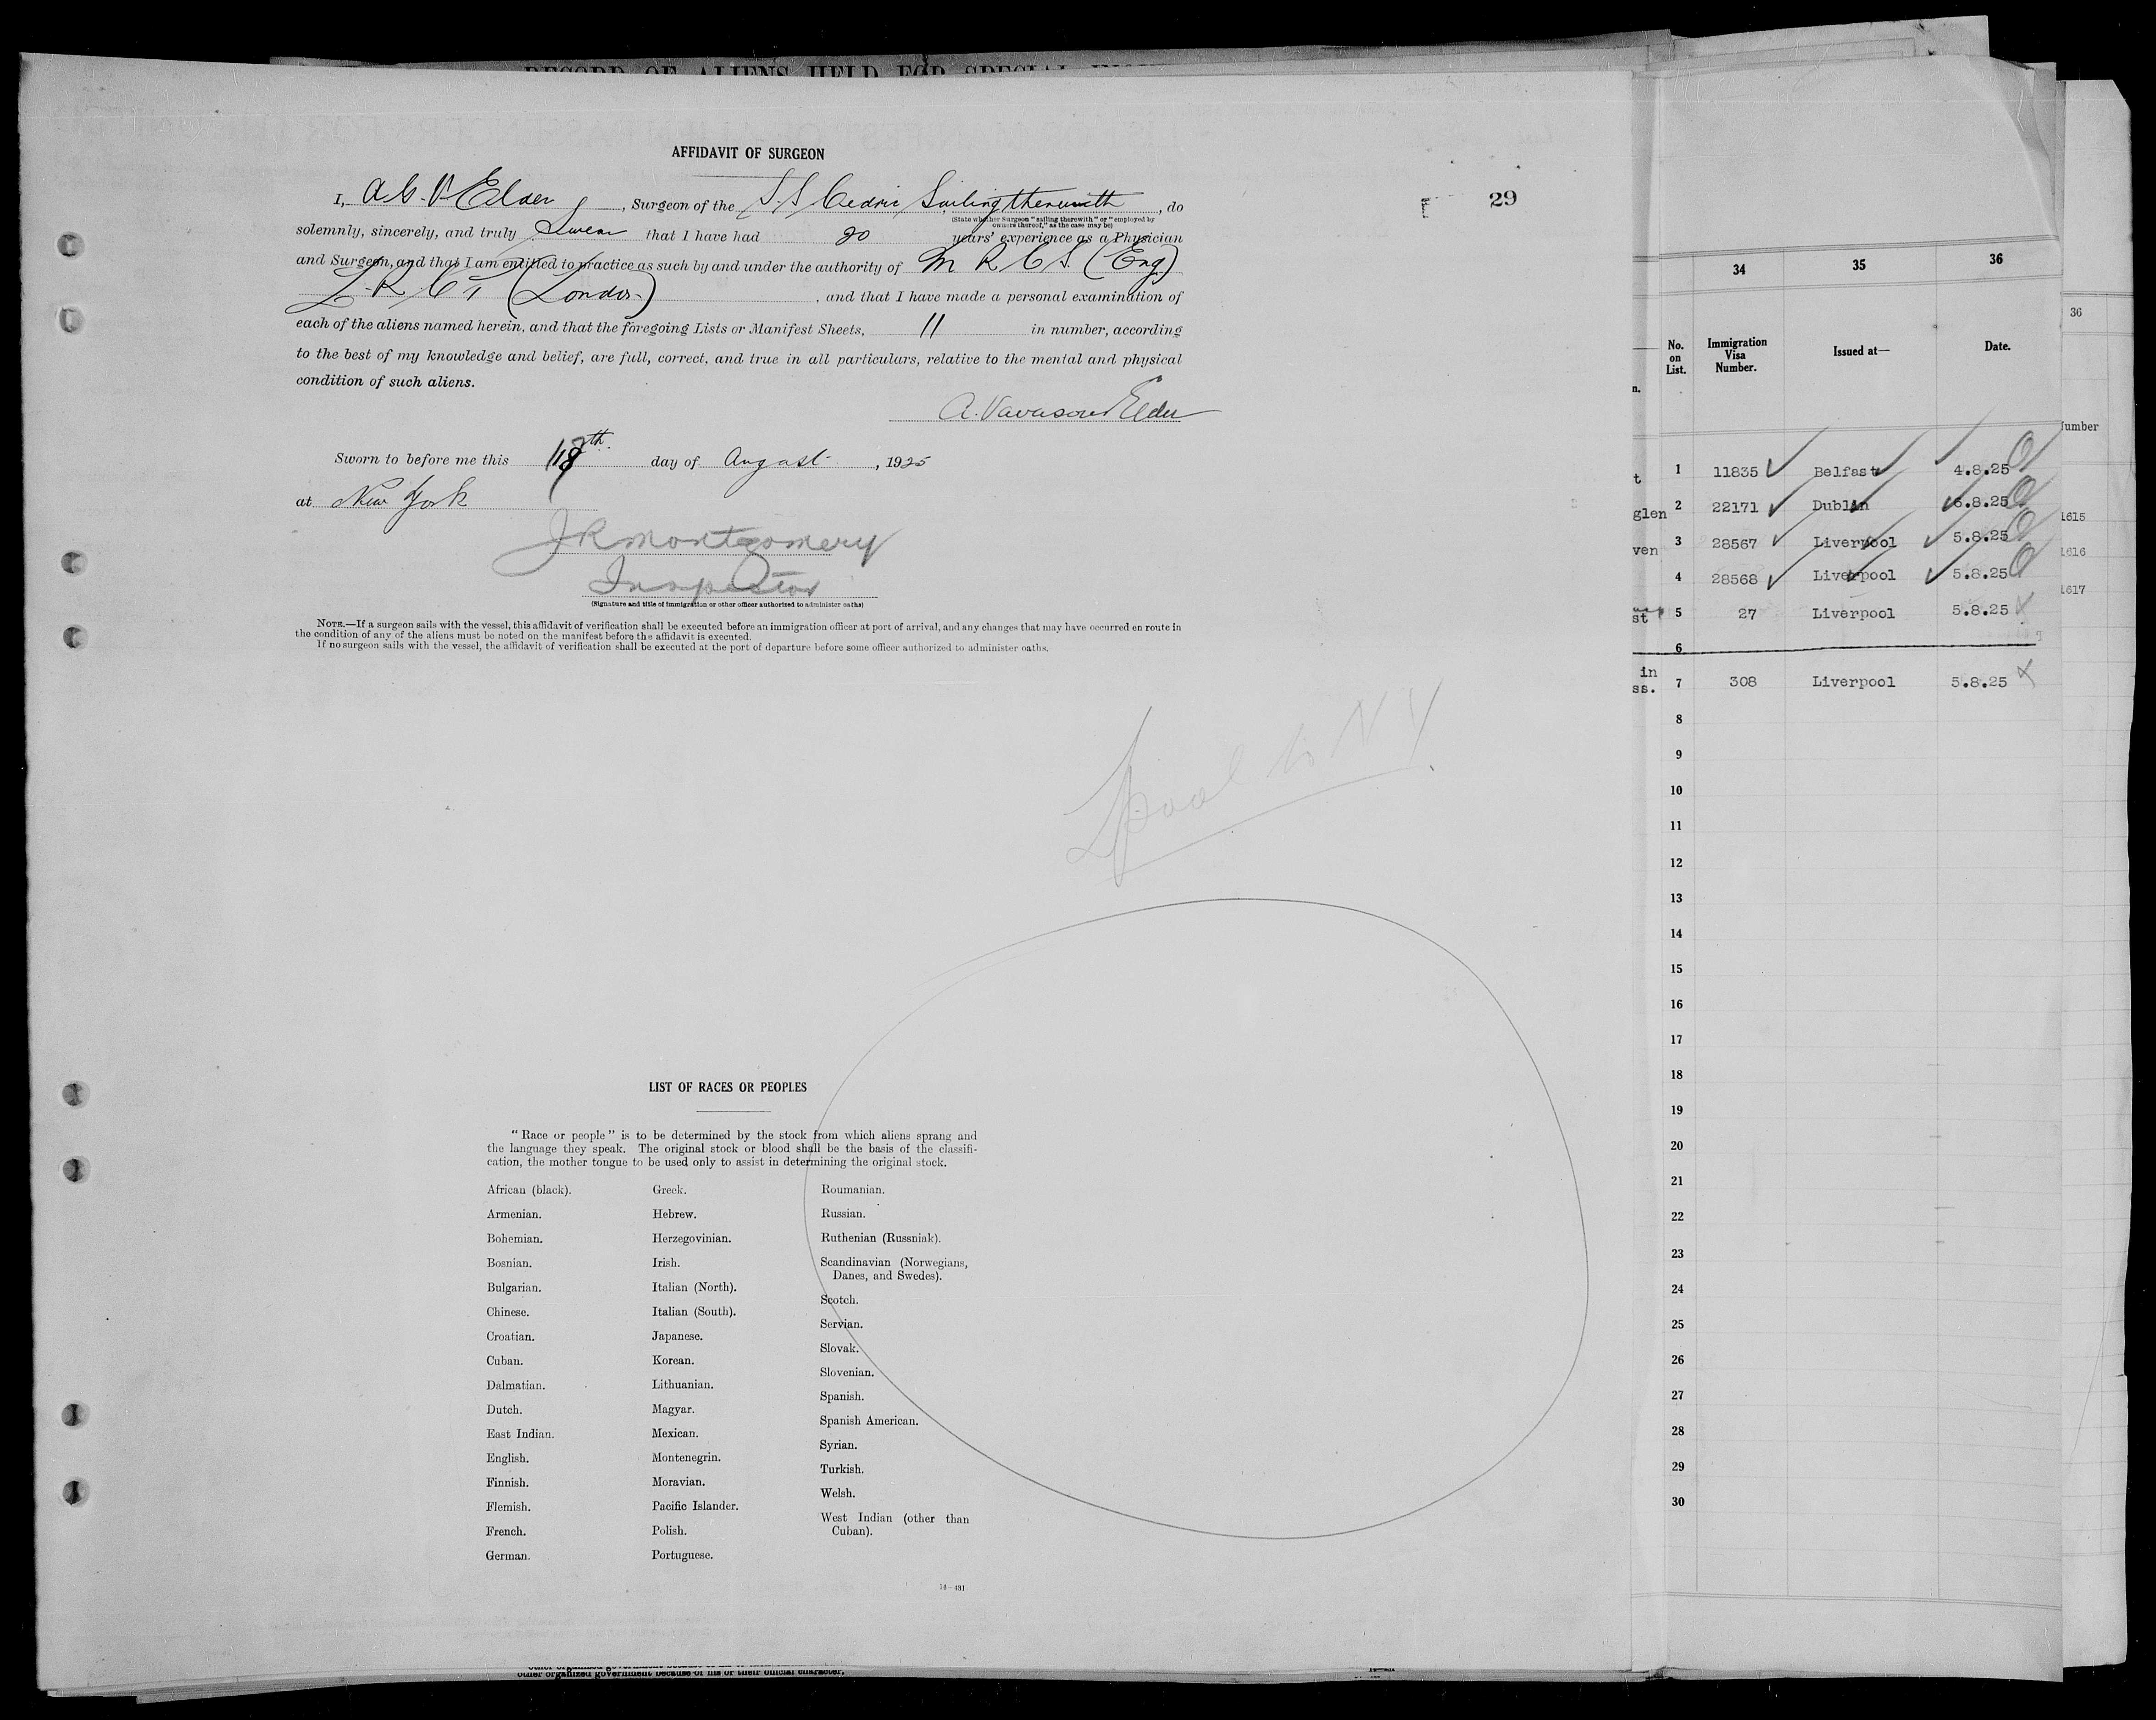 RECORD OF ALIENS HELD FOR SPECIAL
AFFIDAVIT OF SURGEON
29
I, A.G.V. Elder, Surgeon of the S.S. Cedric Sailing therewith, do
(State whether Surgeon "sailing therewith" or "employed by
owners thereof," as the case may be)
solemnly, sincerely, and truly Swear that I have had 20 years' experience as a Physician
and Surgeon, and that I am entitled to practice as such by and under the authority of M R C S. (Eng)
L. R. C P (London), and that I have made a personal examination of
each of the aliens named herein, and that the foregoing Lists or Manifest Sheets, 11 in number, according
to the best of my knowledge and belief, are full, correct, and true in all particulars, relative to the mental and physical
condition of such aliens.
A. Vavasour Elder
Sworn to before me this 18th day of August, 1925
at New York
J R Montgomery
Inspector
(Signature and title of immigration or other officer authorized to administer oaths)
NOTE.—If a surgeon sails with the vessel, this affidavit of verification shall be executed before an immigration officer at port of arrival, and any changes that may have occurred en route in
the condition of any of the aliens must be noted on the manifest before the affidavit is executed.
If no surgeon sails with the vessel, the affidavit of verification shall be executed at the port of departure before some officer authorized to administer oaths.
Lpool to N Y
LIST OF RACES OR PEOPLES
"Race or people" is to be determined by the stock from which aliens sprang and
the language they speak. The original stock or blood shall be the basis of the classifi-
cation, the mother tongue to be used only to assist in determining the original stock.
African (black).
Armenian.
Bohemian.
Bosnian.
Bulgarian.
Chinese.
Croatian.
Cuban.
Dalmatian.
Dutch.
East Indian.
English.
Finnish.
Flemish.
French.
German.
Greek.
Hebrew.
Herzegovinian.
Irish.
Italian (North).
Italian (South).
Japanese.
Korean.
Lithuanian.
Magyar.
Mexican.
Montenegrin.
Moravian.
Pacific Islander.
Polish.
Portuguese.
Roumanian.
Russian.
Ruthenian (Russniak).
Scandinavian (Norwegians,
Danes, and Swedes).
Scotch.
Servian.
Slovak.
Slovenian.
Spanish.
Spanish American.
Syrian.
Turkish.
Welsh.
West Indian (other than
Cuban).
14—431
other organized government because of his or their official character.
34 35 36
No. on List. Immigration Visa Number. Issued at— Date.
n.
t 1 11835 Belfast 4.8.25
glen 2 22171 Dublin 6.8.25
ven 3 28567 Liverpool 5.8.25
4 28568 Liverpool 5.8.25
st 5 27 Liverpool 5.8.25
6
in
ss. 7 308 Liverpool 5.8.25
8
9
10
11
12
13
14
15
16
17
18
19
20
21
22
23
24
25
26
27
28
29
30
36
umber
1615
1616
1617